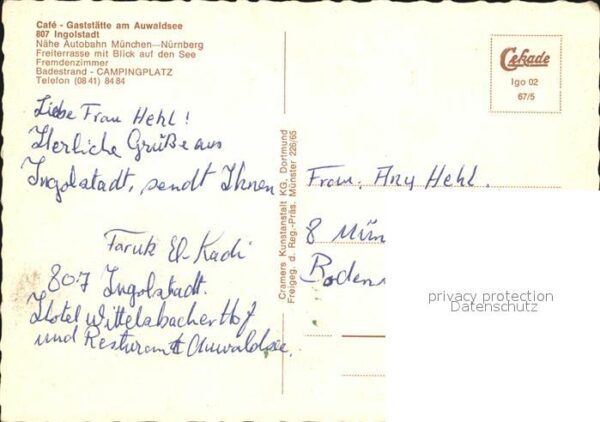 Café - Gaststätte am Auwaldsee
807 Ingolstadt
Nähe Autobahn München—Nürnberg
Freiterrasse mit Blick auf den See
Fremdenzimmer
Badestrand - CAMPINGPLATZ
Telefon (08 41) 84 84
Cekade
Igo 02
67/5
Liebe Frau Hehl!
Herliche Grüße aus
Ingolstadt, sendt Ihnen
Faruk El-Kadi
807 Ingolstadt.
Hotel Wittelsbacher Hof
und Resturant Auwaldsee.
Cramers Kunstanstalt KG, Dortmund
Freigeg. d. Reg.-Präs. Münster 226/65
Frau, Any Hehl.
8 Mün
Boden
privacy protection
Datenschutz